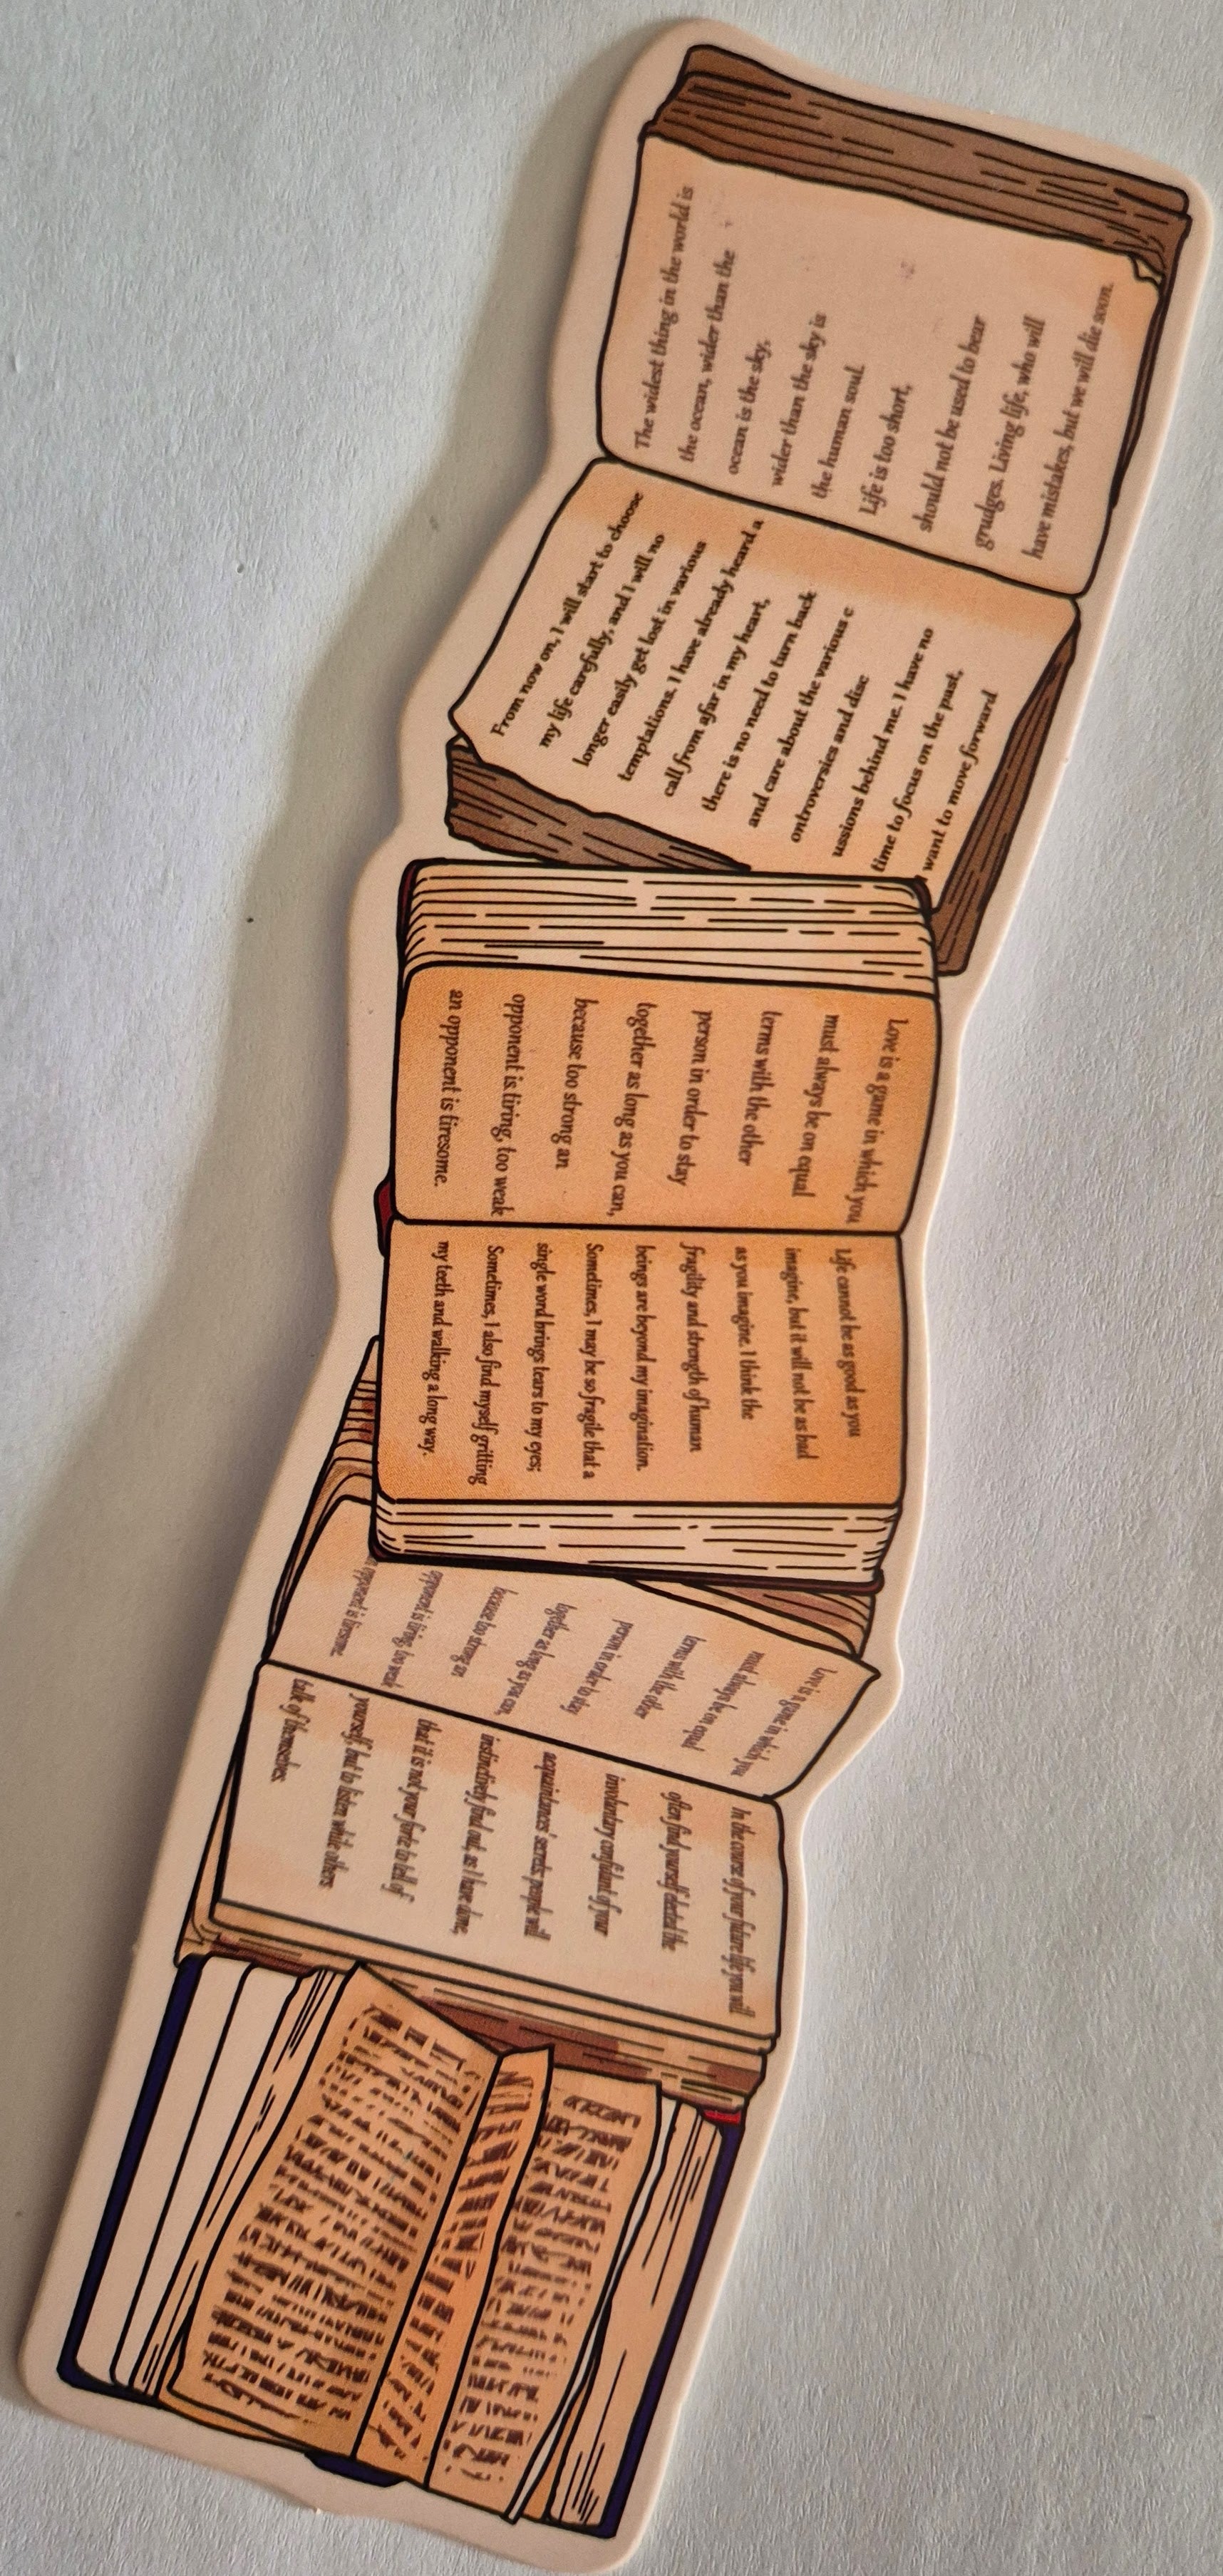 The widest thing in the world is
the ocean, wider than the
ocean is the sky,
wider than the sky is
the human soul.
Life is too short,
should not be used to bear
grudges. Living life, who will
have mistakes, but we will die soon.
From now on, I will start to choose
my life carefully, and I will no
longer easily get lost in various
temptations. I have already heard a
call from afar in my heart,
there is no need to turn back
and care about the various c
ontroversies and disc
ussions behind me. I have no
time to focus on the past,
want to move forward
Love is a game in which you
must always be on equal
terms with the other
person in order to stay
together as long as you can,
because too strong an
opponent is tiring, too weak
an opponent is tiresome.
Life cannot be as good as you
imagine, but it will not be as bad
as you imagine. I think the
fragility and strength of human
beings are beyond my imagination.
Sometimes, I may be so fragile that a
single word brings tears to my eyes;
Sometimes, I also find myself gritting
my teeth and walking a long way.
Love is a game in which you
must always be on equal
terms with the other
person in order to stay
together as long as you can,
because too strong an
opponent is tiring, too weak
opponent is tiresome.
In the course of your future life you will
often find yourself elected the
involuntary confidant of your
acquaintances' secrets; people will
instinctively find out, as I have done,
that it is not your forte to tell of
yourself, but to listen while others
talk of themselves.